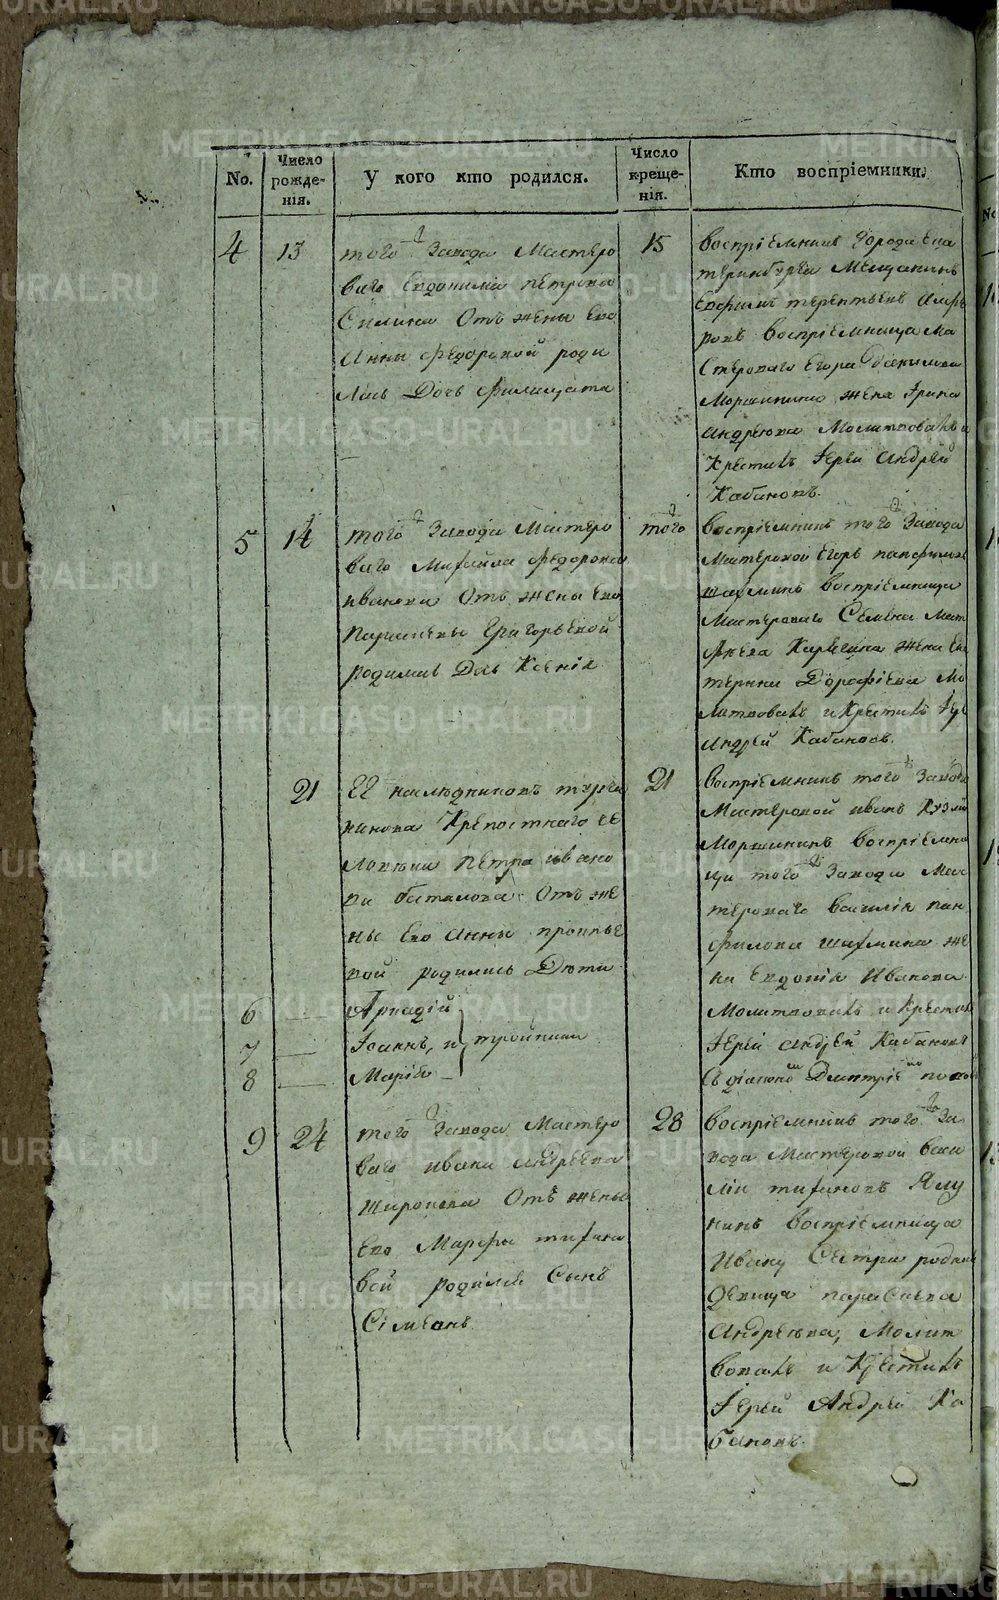 No.
Число рожде-
нія.
У кого кто родился.
Число
креще-
нія.
Кто воспріемники.
4
13
того Завода Мастеро
ваго Евдокима Петрова
Силина Отъ жены Его
Анны Федоровой роди
лась Дочь Филицата
15
Воспріемникъ Города Ека
теринбурга Мещанинъ
Ефимъ терентьевъ
ровъ Воспріемница Ма
стероваго Егора Данилова
Моршинина жена Ірина
Андреева Молитвовалъ и
Крестилъ Іерей Андрей
Кабановъ.
5
14
того Завода Мастеро
ваго Михаила Федорова
иванова Отъ жены Его
Параскевы Григорьевой
родилась Дочь Ксенія
того
Воспріемникъ того Завода
Мастеровой Егоръ панфиловъ
Воспріемница
Мастероваго Семена Мат
фѣева жена Ека
терина Дорофіева Мо
литвовалъ и Крестилъ Іер
Андрей Кабановъ.
21
ЕГ наследниковъ турча
нинова Крепостнаго че
ловека Петра ивано
ва баталова Отъ же
ны Его Анны
вой родились Дети
6 Аркадій
7 Іоаннъ, и тройники
8 Марія
21
Воспріемникъ того Завода
Мастеровой иванъ
Моршининъ Воспріемни
ца того Завода Мас
тероваго Василія пан
филова же
на Евдокія Иванова
Молитвовалъ и Крестилъ
Іерей Андрей Кабановъ
Съ діакономъ Дмитріемъ
9
24
того Завода Мастеро
ваго ивана Андреева
Широкова Отъ жены
Его Марфы тихано
вой родился Сынъ
Сімеонъ.
28
Воспріемникъ того За
вода Мастеровой Васи
лій тихановъЯлу
нинъ Воспріемница
Ивану Сестра родная
Девица параскева
Андреева, Молит
вовалъ и Крестилъ
Іерей Андрей Ка
бановъ.
METRIKI.GASO-URAL.RU